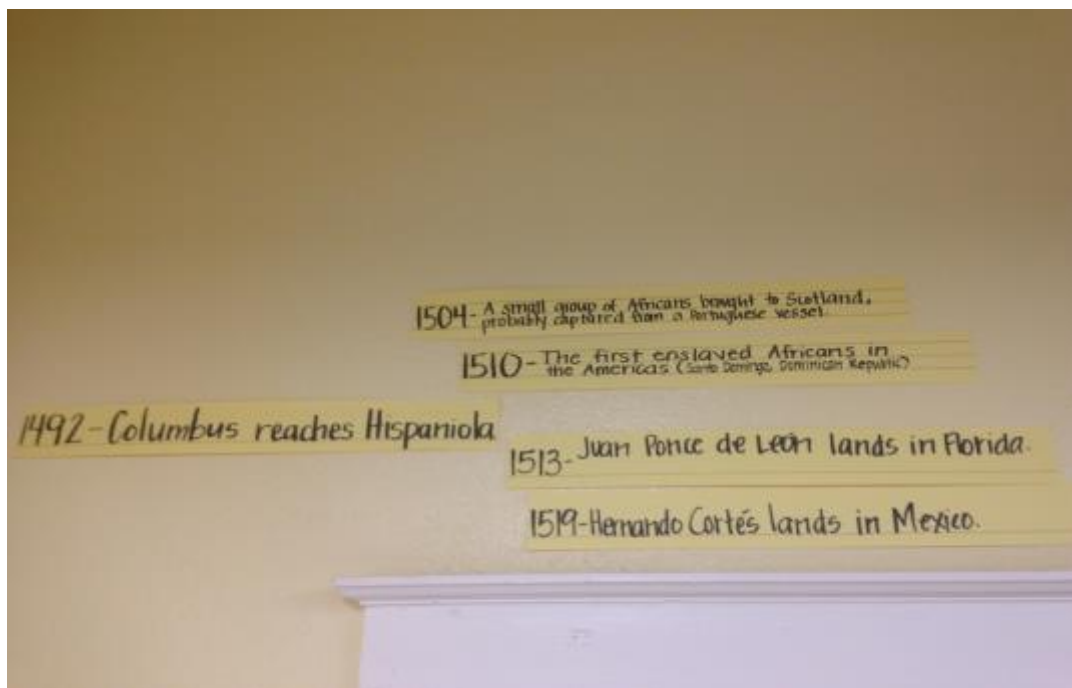 1504- A small group of Africans brought to Scotland,
probably captured from a Portuguese vessel.
1510-The first enslaved Africans in
the Americas (Santo Domingo, Dominican Republic)
1492-Columbus reaches Hispaniola
1513-Juan Ponce de León lands in Florida.
1519-Hernando Cortés lands in Mexico.